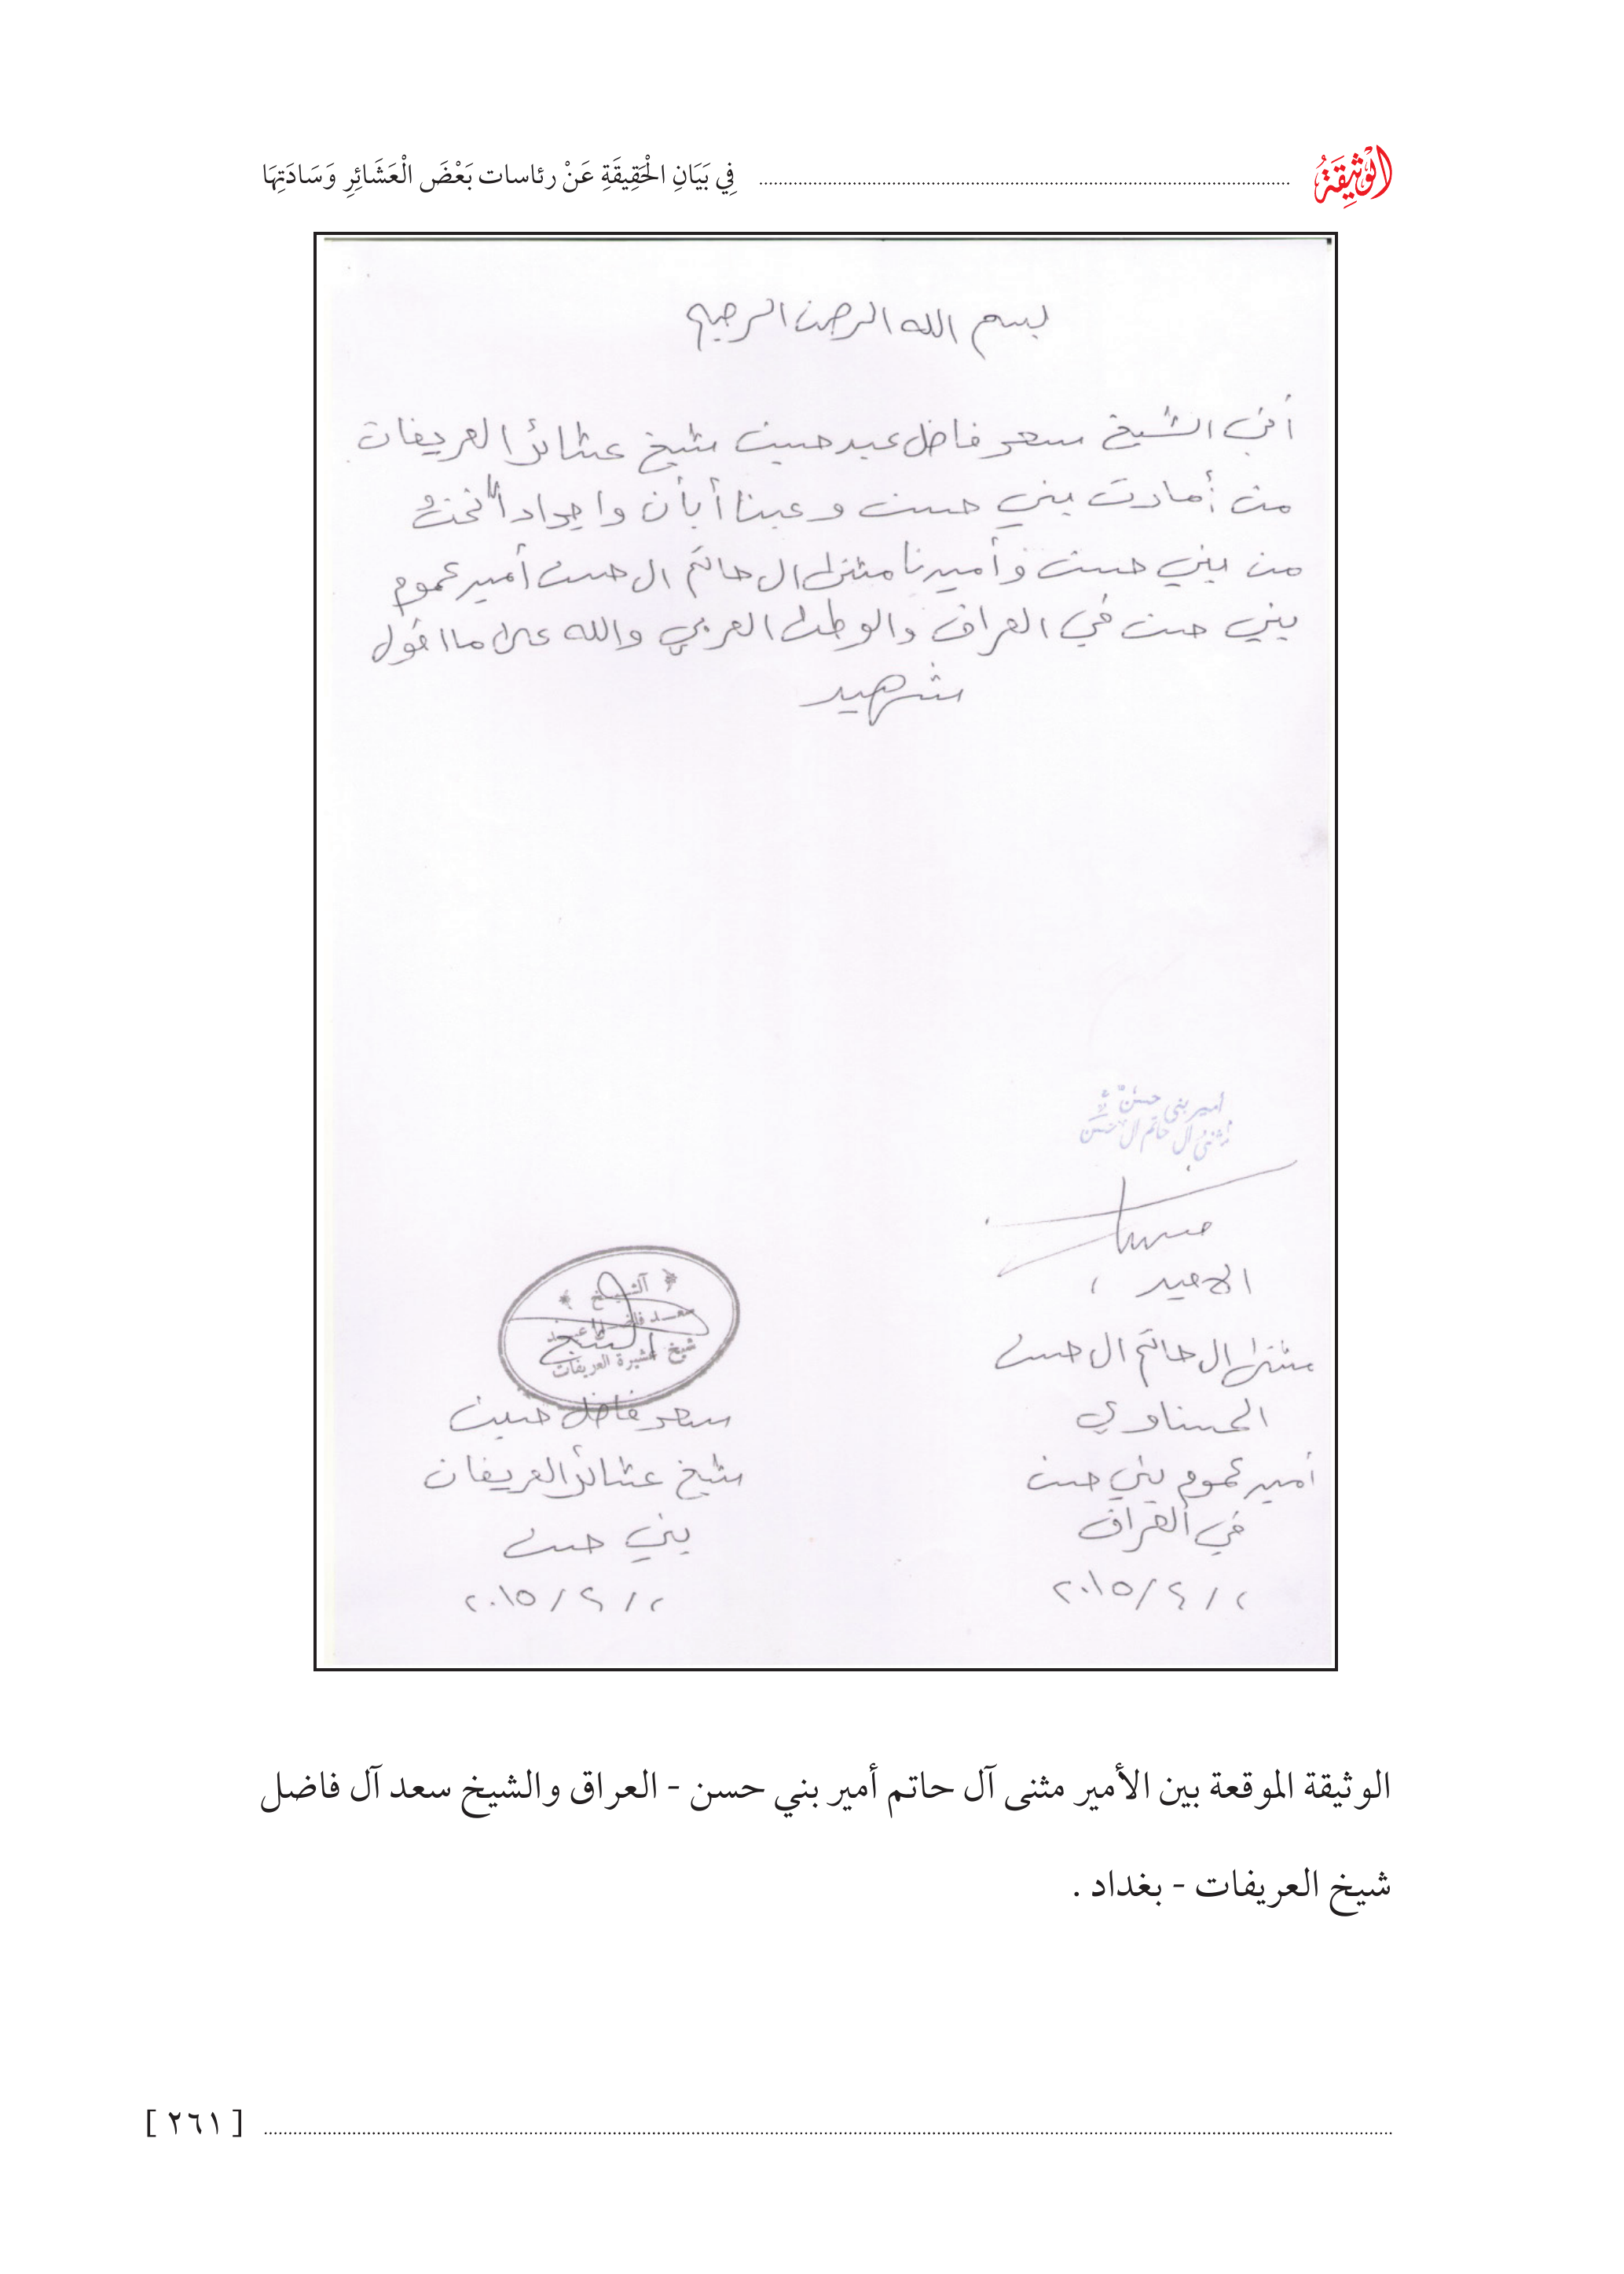 الْوَثِيقَةُ فِي بَيَانِ الْحَقِيقَةِ عَنْ رئاسات بَعْضَ الْعَشَائِرِ وَسَادَتِهَا
بسم الله الرحمن الرحيم
أني الشيخ سعد فاضل عبد حسين شيخ عشائر العريفات
من أمارت بني حسن وعبنا أبأن واجداد نحن
من بني حسن وأميرنا مثنى ال حاتم ال حسن أمير عموم
بني حسن في العراق والوطن العربي والله على ما اقول
شهيد
أمير بني حسن
مثنى آل حاتم ال حسن
الامير
مثنى ال حاتم ال حسن
الحسناوي
أمير عموم بني حسن
في العراق
٢٠١٥/٤/٢
الشيخ
شيخ عشيرة العريفات
سعد فاضل حسين
شيخ عشائر العريفات
بني حسن
الوثيقة الموقعة بين الأمير مثنى آل حاتم أمير بني حسن - العراق والشيخ سعد آل فاضل
شيخ العريفات - بغداد .
[ ٢٦١ ]